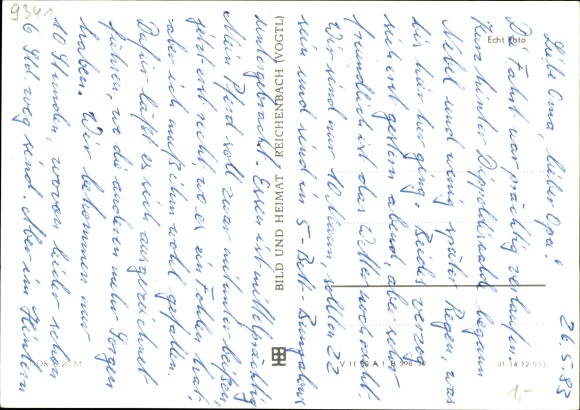 26.5.83
Liebe Oma, lieber Opa!
D. Fahrt war prächtig verlaufen.
Kurz hinter Dippoldiswalde begann
Nebel und wenig später Regen, was
bis hier her ging. Beides verzog
sich erst gestern abend, aber sehr
freundlich ist das Wetter noch nicht.
Wir sind nur 10 Mann, sollten 22
sein und sind in 5-Bett-Bungalows
untergebracht. Essen ist mittelprächtig
Mein Pferd soll zwar mitunter beißen,
jetzt erst nicht, wo es ein Fohlen hat,
aber ich muß ihm wohl gefallen.
Dafür läßt es sich ausgezeichnet
führen, wo die anderen mehr Sorgen
haben. Wir bekommen nur
10 Stunden, wovon leider schon
6 Std. weg sind. Aber im Hintern
9341
Echt Foto
BILD UND HEIMAT REICHENBACH (VOGTL)
V 11 50 A 1
01 14 12
1,-